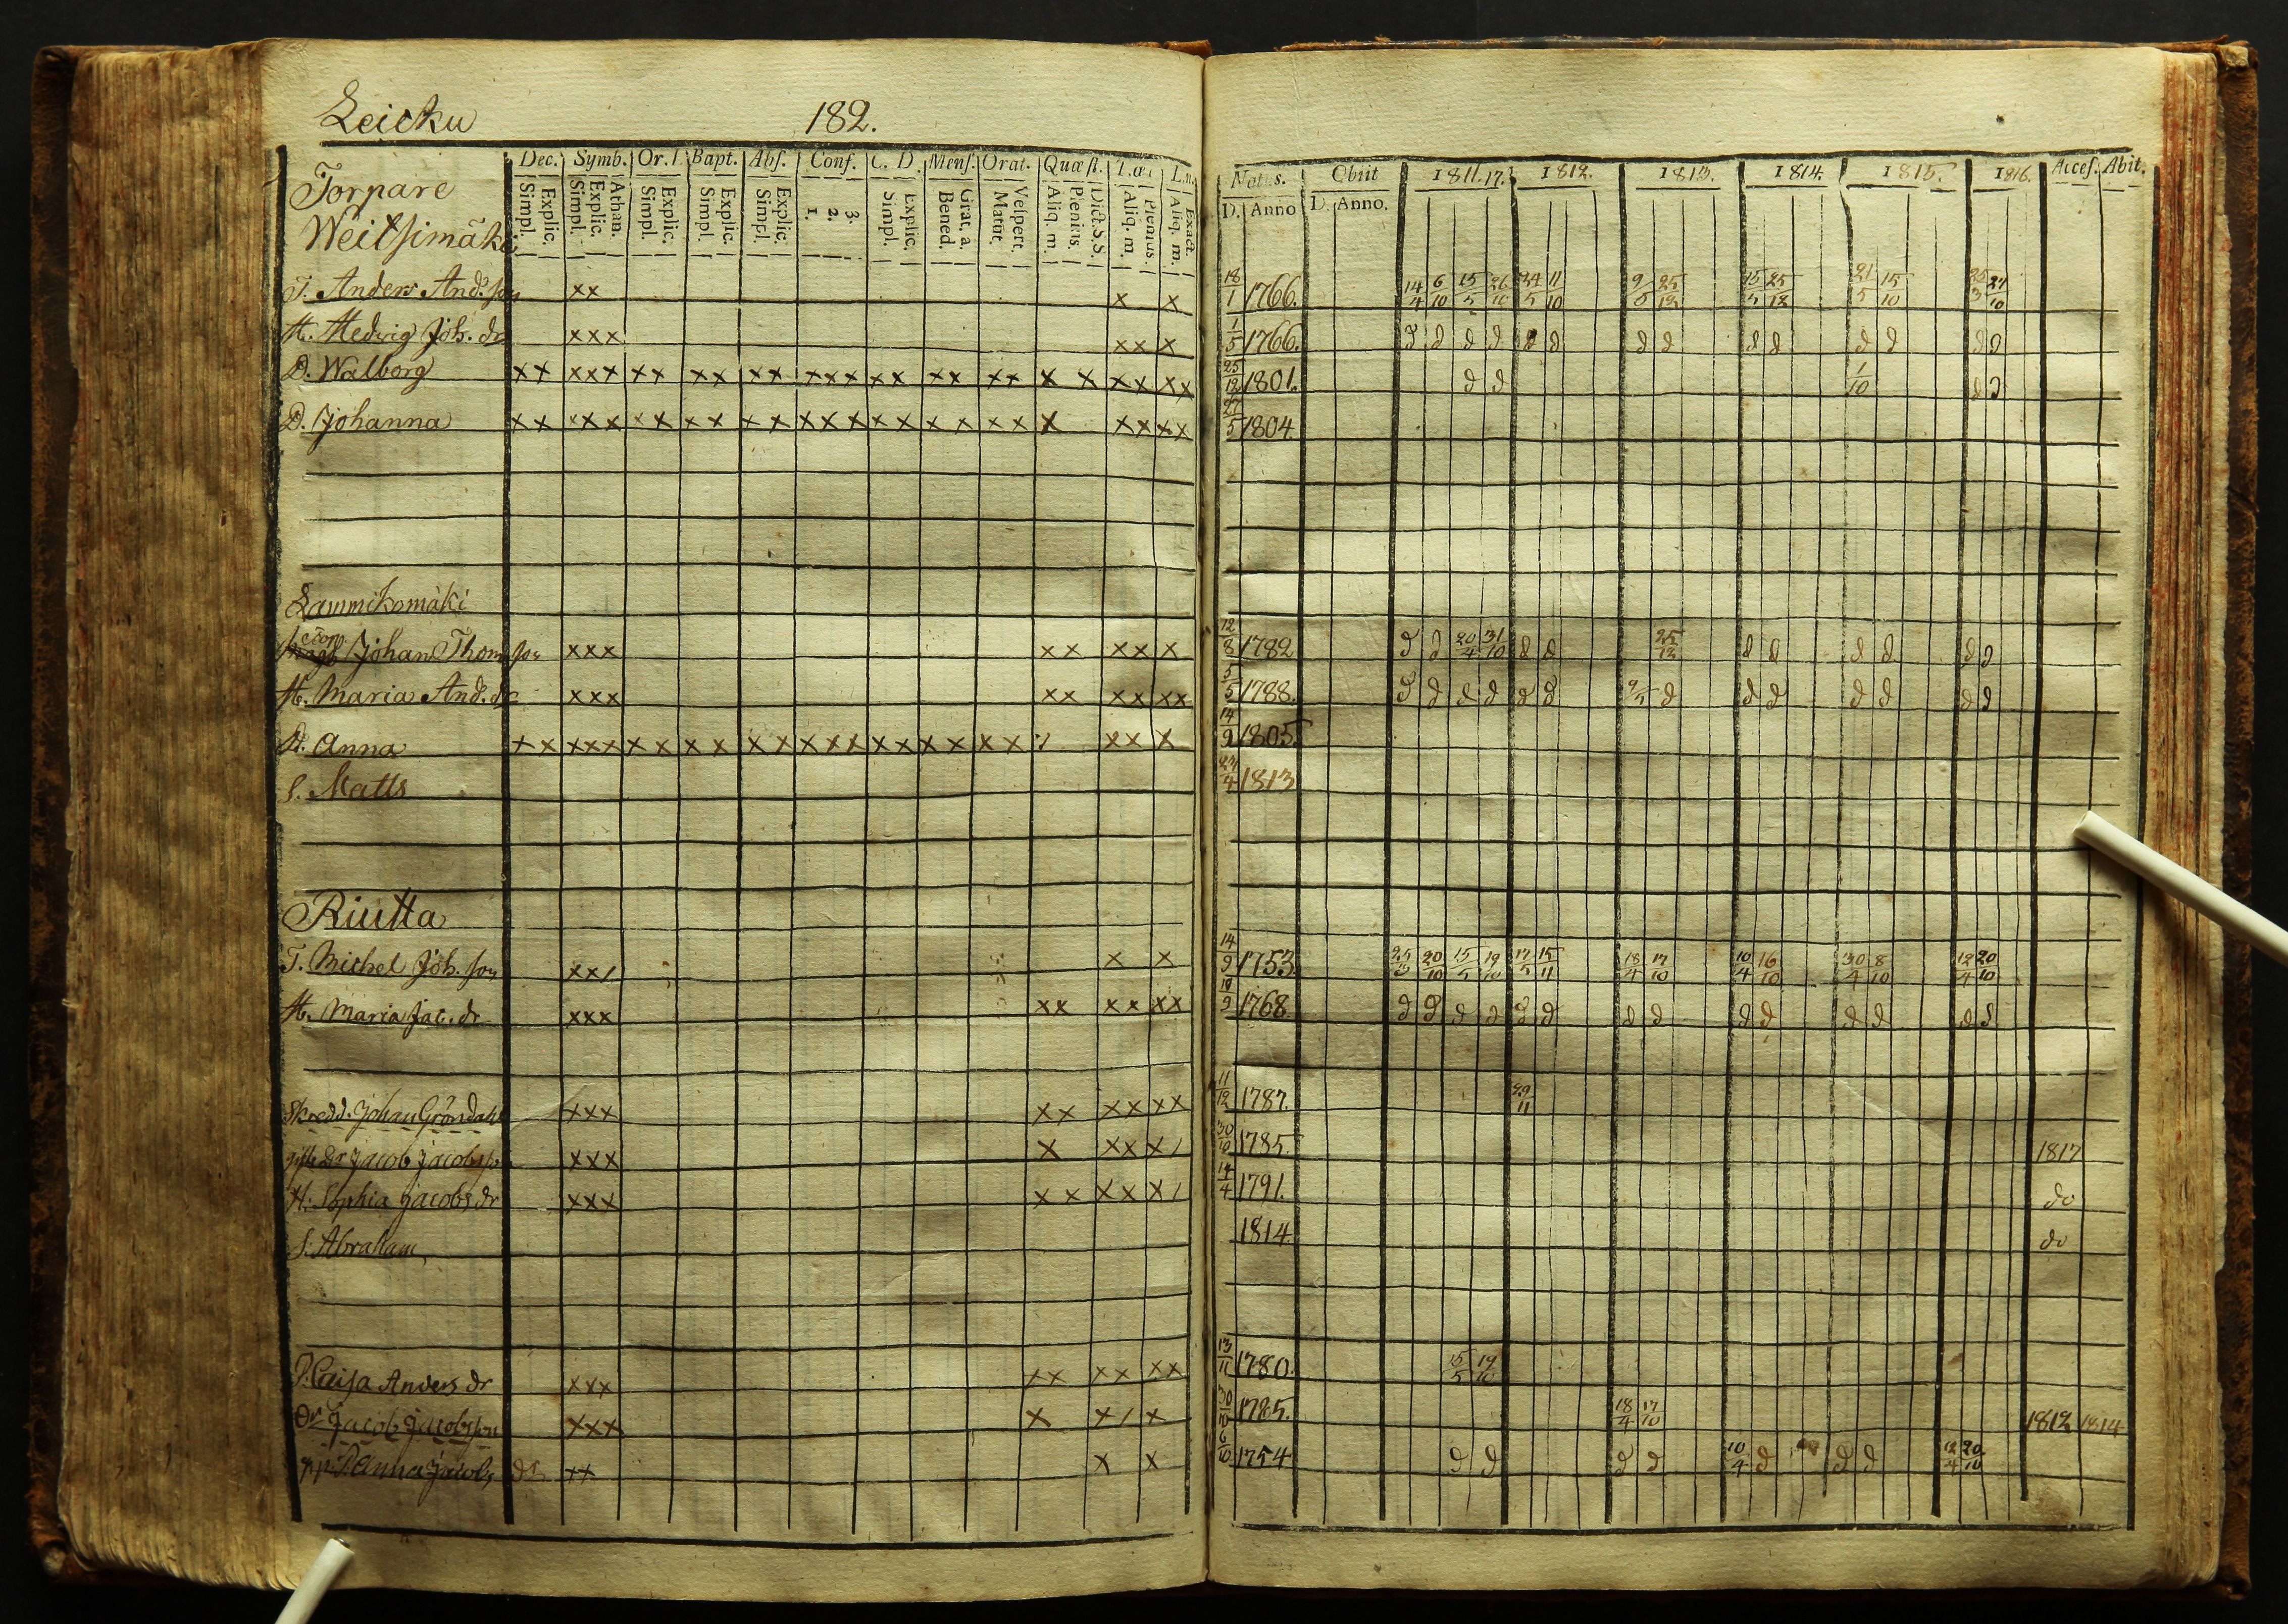 Leicku 182.
Dec. Symb. Or. D Bapt. Abs. Conf. C. D. Mens. Orat. Quæst.
Explic. Simpl. Athan. Explic. Simpl. Explic. Simpl. Explic. Simpl. Explic. Simpl. 3. 2. 1. Explic. Simpl. Grat. a. Bened. Vespert. Matut. Dict. S. S. Plenius. Aliq. m. Plenius. Aliq. m. Exact. Aliq. m.
Natus. Obiit 1811.17. 1812. 1813. 1814. 1815. 1816. Access. Abit.
D. Anno D. Anno.
Torpare
Weitsimäki
T. Anders And. son xx x x 18/1 1766. 14/4 6/10 15/5 26/10 24/5 11/10 9/5 25/12 15/5 25/12 21/5 15/10 25/3 27/10
H. Hedvig Joh. dr xxx xx x 1/5 1766. d d d d d d d d d d d d d d
D. Walborg xx xxx xx xx xx xxx xx xx xx x x xx xx 25/12 1801. d d 1/10 d d
D. Johanna xx xxx xx xx xx xxx xx xx xx x xx xx 27/5 1804.
Lammikomäki
Johan Thom. son xxx xx xx x 12/8 1782 d d 20/4 31/10 d d 25/12 d d d d d d
H. Maria And. dr xxx xx xx xx 5/5 1788. d d d d d d 9/5 d d d d d d d
D. Anna xx xxx xx xx xx xxx xx xx xx / xx x 14/9 1805.
S. Matts 23/4 1813
Riutta
T. Michel Joh. son xx/ x x 14/9 1753 25/3 20/10 15/5 19/10 17/5 15/11 18/4 17/10 10/4 16/10 30/4 8/10 12/4 20/10
H. Maria Jac. dr xxx xx xx xx 1768. d d d d d d d d d d d d d d
Skredd. Johan Gröndahl xxx xx xx xx 11/12 1787. 29/11
Dr Jacob Jacobsson xxx x xx x/ 30/10 1785 1817
H. Sophia Jacobs dr xxx xx xx x/ 14/4 1791. do
S. Abraham 1814. do
P. Caisa Anders dr xxx xx xx xx 13/11 1780. 15/5 19/10
Dr Jacob Jacobsson xxx x x/ x 30/10 1785. 18/4 17/10 1812 1814
P. Anna Jacobs dr xx x x 6/10 1754 d d d d 10/4 d d d 12/4 20/10